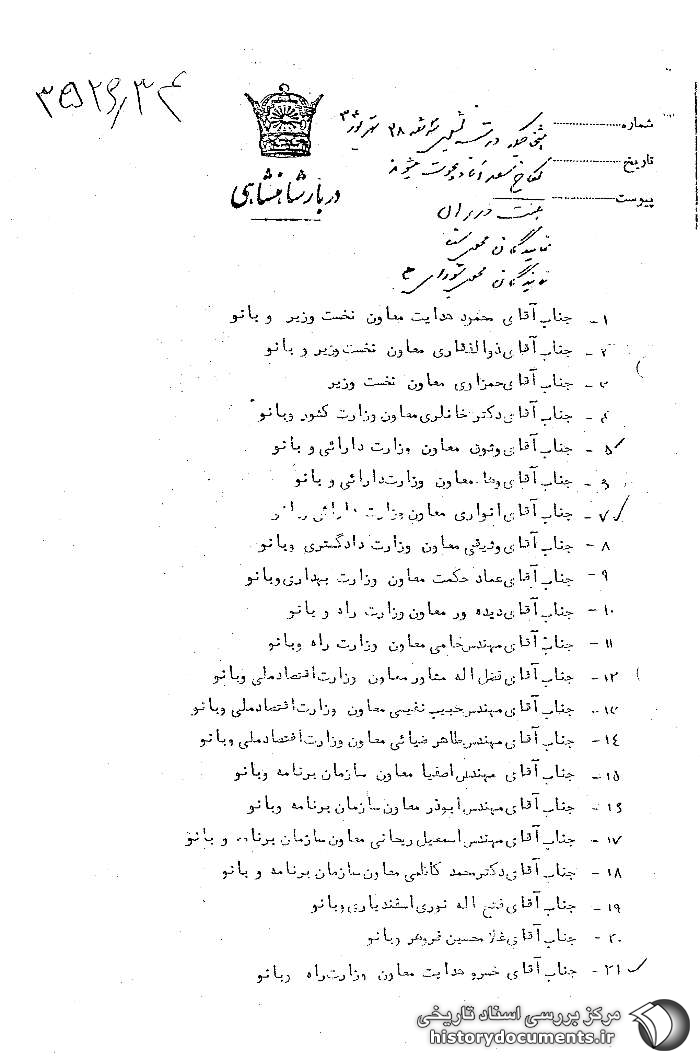 ۳۵۲۶ر۳۴
شماره
تاریخ
پیوست
دربار شاهنشاهی
هیئت وزیران
نمایندگان مجلس سنا
نمایندگان مجلس شورای
۱- جناب آقای حمزه هدایت معاون نخست وزیر و بانو
۲- جناب آقای ذوالفقاری معاون نخست وزیر و بانو
۳- جناب آقای حمزاوی معاون نخست وزیر
۴- جناب آقای دکتر خانلری معاون وزارت کشور وبانو
۵- جناب آقای وثوق معاون وزارت دارائی و بانو
۶- جناب آقای وفا معاون وزارت دارائی و بانو
۷- جناب آقای انواری معاون وزارت دارائی و بانو
۸- جناب آقای وثیقی معاون وزارت دادگستری وبانو
۹- جناب آقای عماد حکمت معاون وزارت بهداری وبانو
۱۰- جناب آقای دیده ور معاون وزارت راه و بانو
۱۱- جناب آقای مهندس معاون وزارت راه وبانو
۱۲- جناب آقای فضل اله مشاور معاون وزارت اقتصاد ملی وبانو
۱۳- جناب آقای مهندس حبیب نفیسی معاون وزارت اقتصاد ملی وبانو
۱۴- جناب آقای مهندس طاهر ضیائی معاون وزارت اقتصاد ملی وبانو
۱۵- جناب آقای مهندس اصفیا معاون سازمان برنامه وبانو
۱۶- جناب آقای مهندس ابوذر معاون سازمان برنامه وبانو
۱۷- جناب آقای مهندس اسمعیل ریحانی معاون سازمان برنامه و بانو
۱۸- جناب آقای دکتر محمد کاظمی معاون سازمان برنامه و بانو
۱۹- جناب آقای فتح اله نوری اسفندیاری وبانو
۲۰- جناب آقای غلامحسین فروهر وبانو
۲۱- جناب آقای خسرو هدایت معاون وزارت راه وبانو
مرکز بررسی اسناد تاریخی
historydocuments.ir